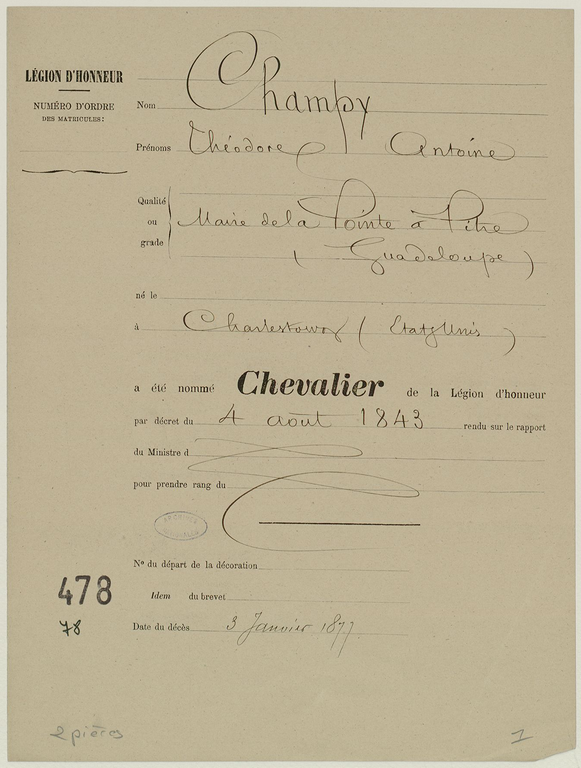 LÉGION D'HONNEUR
NUMÉRO D'ORDRE
DES MATRICULES:
Nom Champy
Prénoms Théodore Antoine
Qualité
ou
grade
Maire de la Pointe à Pitre
( Guadeloupe )
né le
à Charlestown ( Etats Unis )
a été nommé Chevalier de la Légion d'honneur
par décret du 4 août 1843 rendu sur le rapport
du Ministre d
pour prendre rang du
ARCHIVES
Nº du départ de la décoration
478
Idem du brevet
78
Date du décès 3 Janvier 1877
2 pièces
1